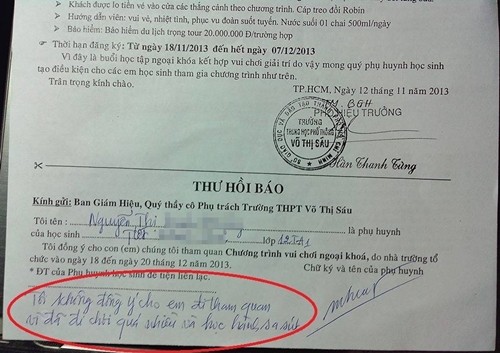 Khách được lo tiền vé vào cửa các thắng cảnh theo chương trình. Cáp treo đồi Robin
➢ Hướng dẫn viên: vui vẻ, nhiệt tình, phục vụ đoàn suốt tuyến. Nước suối 01 chai 500ml/ngày
➢ Bảo hiểm: Bảo hiểm du lịch trọng tour 20.000.000 Đ/trường hợp
Thời hạn đăng ký: Từ ngày 18/11/2013 đến hết ngày 07/12/2013
Vì đây là buổi học tập ngoại khóa kết hợp vui chơi giải trí do vậy mong quý phụ huynh học sinh
tạo điều kiện cho các em học sinh tham gia chương trình như trên.
Trân trọng kính chào.
TP.HCM, Ngày 12 tháng 11 năm 2013
TM. BGH
PHÓ HIỆU TRƯỞNG
TRƯỜNG
TRUNG HỌC PHỔ THÔNG
VÕ THỊ SÁU
Hàn Thanh Tùng
THƯ HỒI BÁO
Kính gửi: Ban Giám Hiệu, Quý thầy cô Phụ trách Trường THPT Võ Thị Sáu
Tôi tên : Nguyễn Thị là phụ huynh
của học sinh , lớp 12TA1
Tôi đồng ý cho con (em) chúng tôi tham quan Chương trình vui chơi ngoại khoá, do nhà trường tổ
chức vào ngày 18 đến ngày 20 tháng 12 năm 2013. Chữ ký và tên của phụ huynh
* ĐT của Phụ huynh học sinh để tiện liên lạc.
Tôi không đồng ý cho em đi tham quan
vì đã đi chơi quá nhiều và học hành sa sút